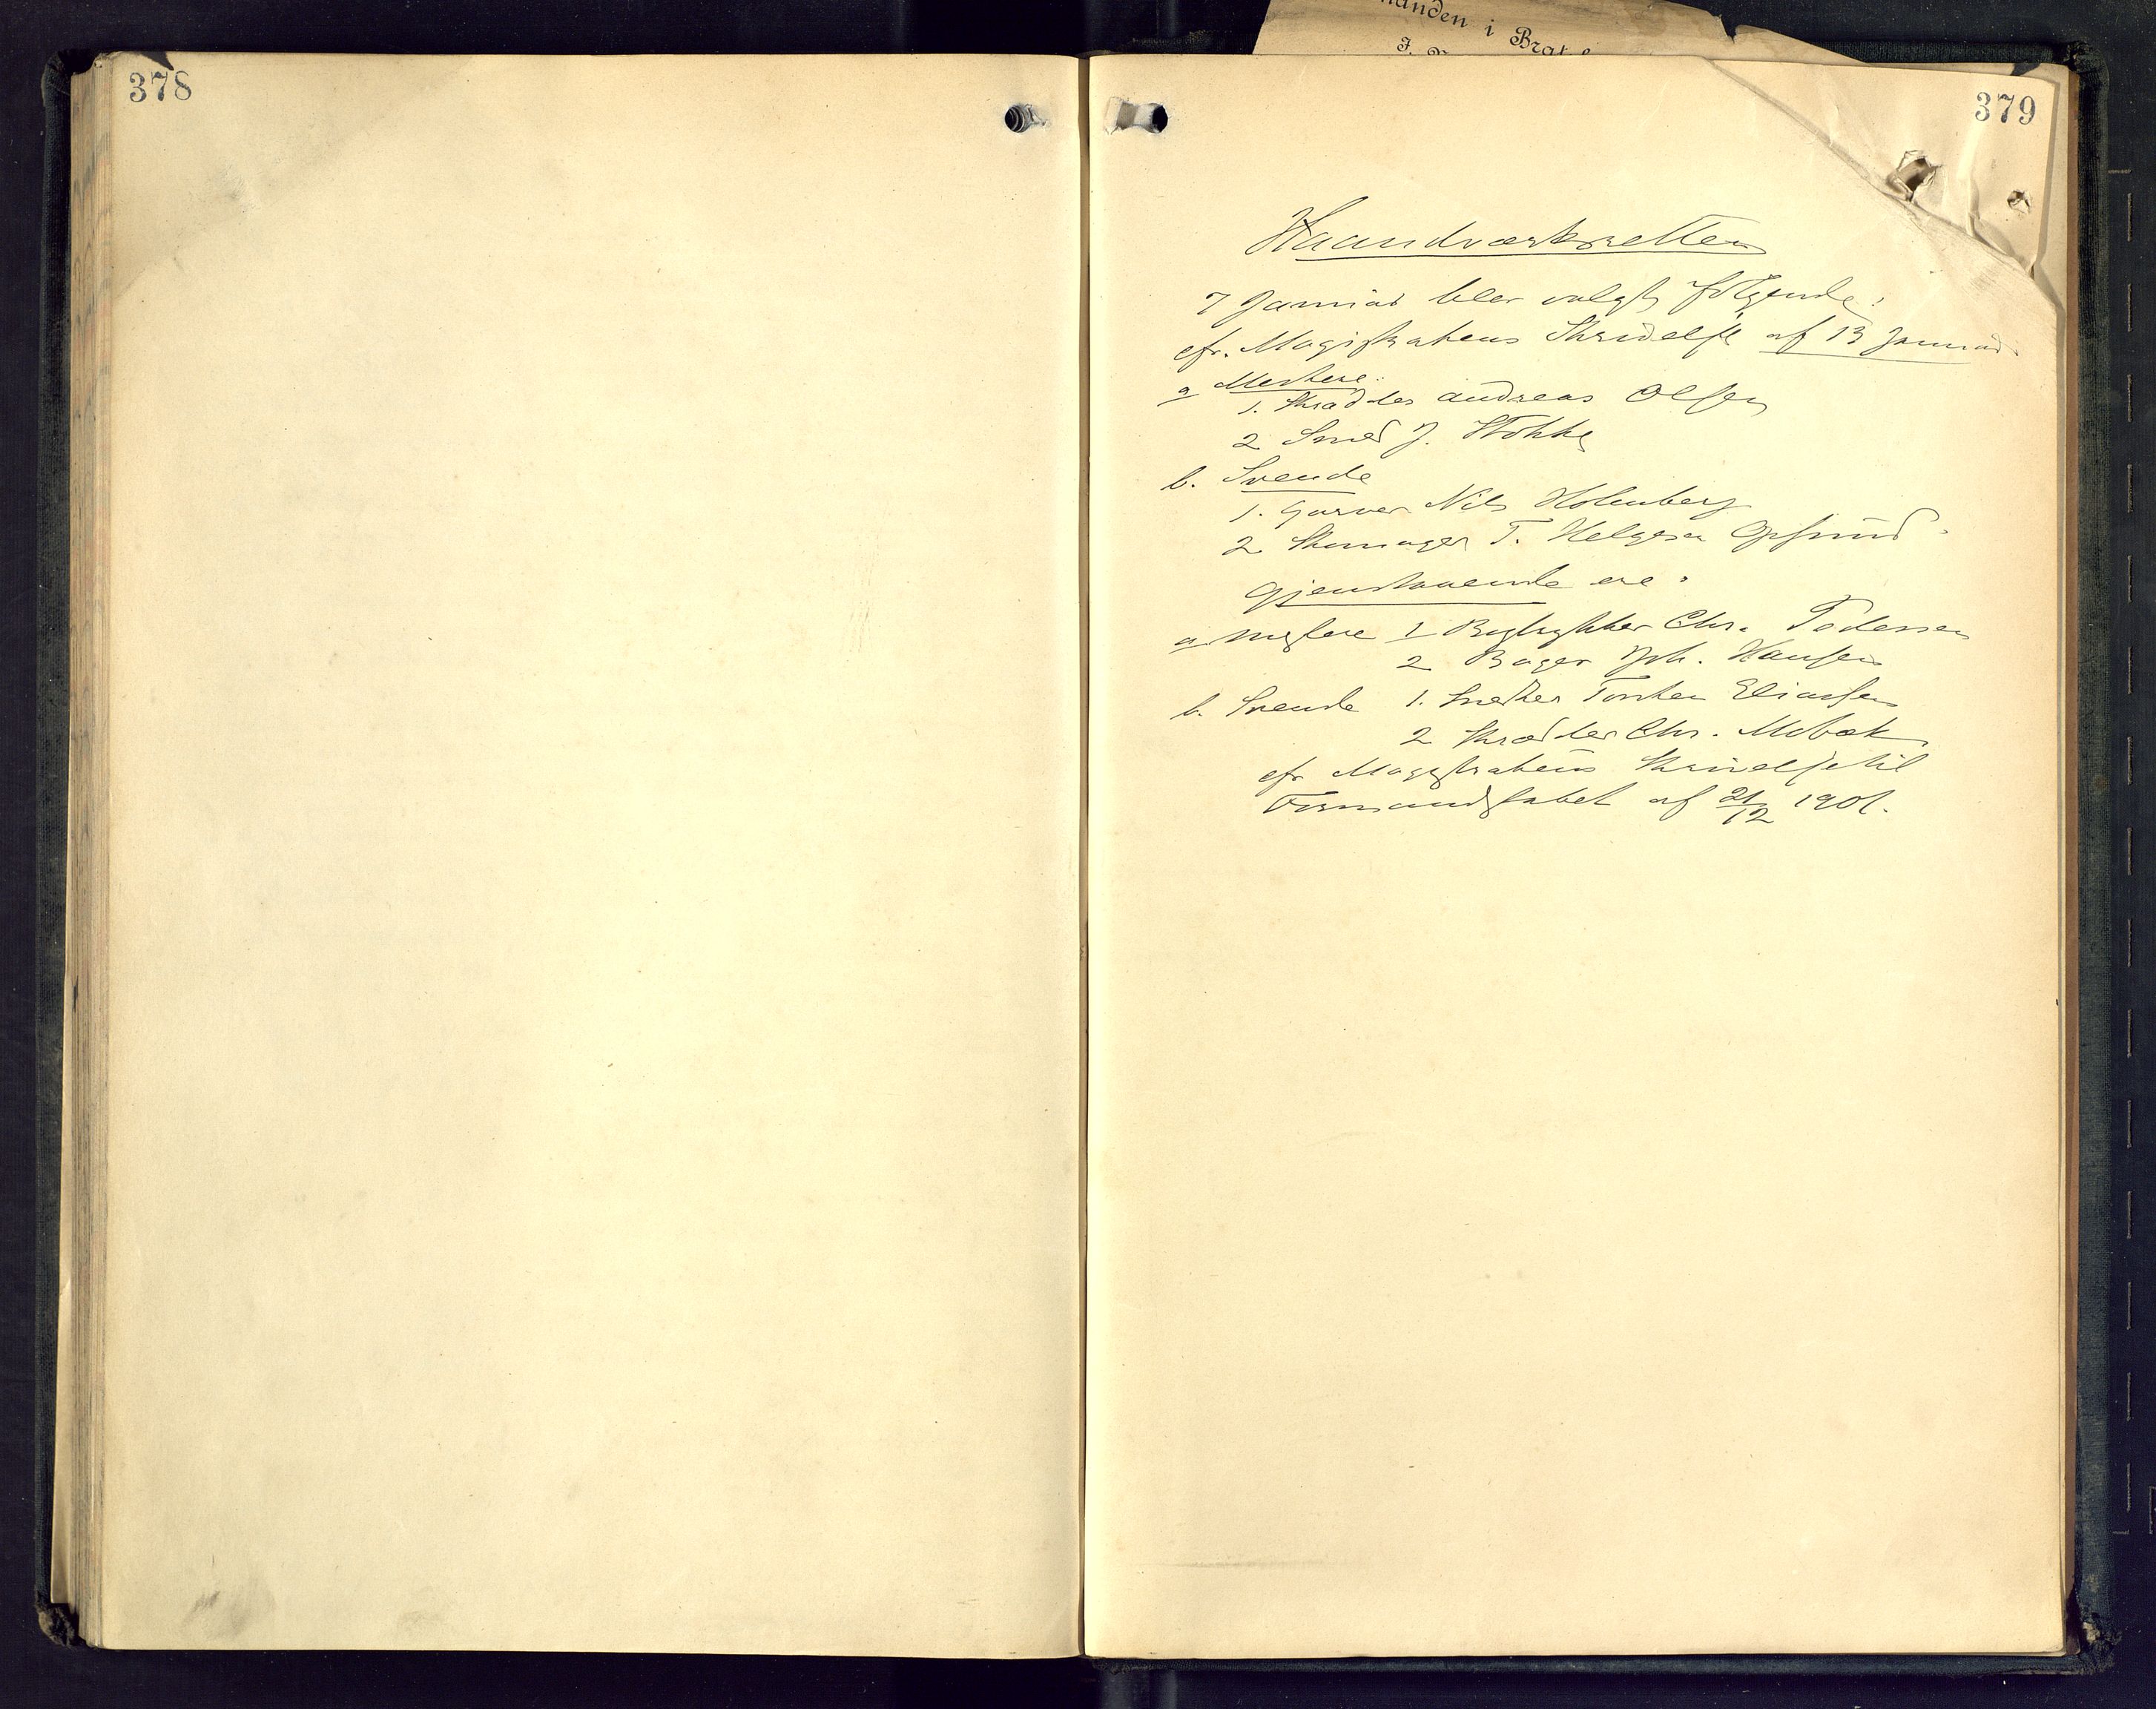 378
379
Haandværksretten
7 Januar blev valgt følgende:
cfr. Magistratens Skrivelse af 13 Januar
a Mestere:
1. Skrædder Andreas Olsen
2 Smed J.
b. Svende
1. Garver Nils Holmberg
2 Skomager T. Helgesen
Gjenstaaende ere:
a Mestere 1 Chr. Pedersen
2 Bager Joh. Hansen
b. Svende 1. Snedker Torsten Eliassen
2 Skrædder Chr. Mebæk
cfr Magistratens Skrivelse til
Formandskabet af 21/12 1901.